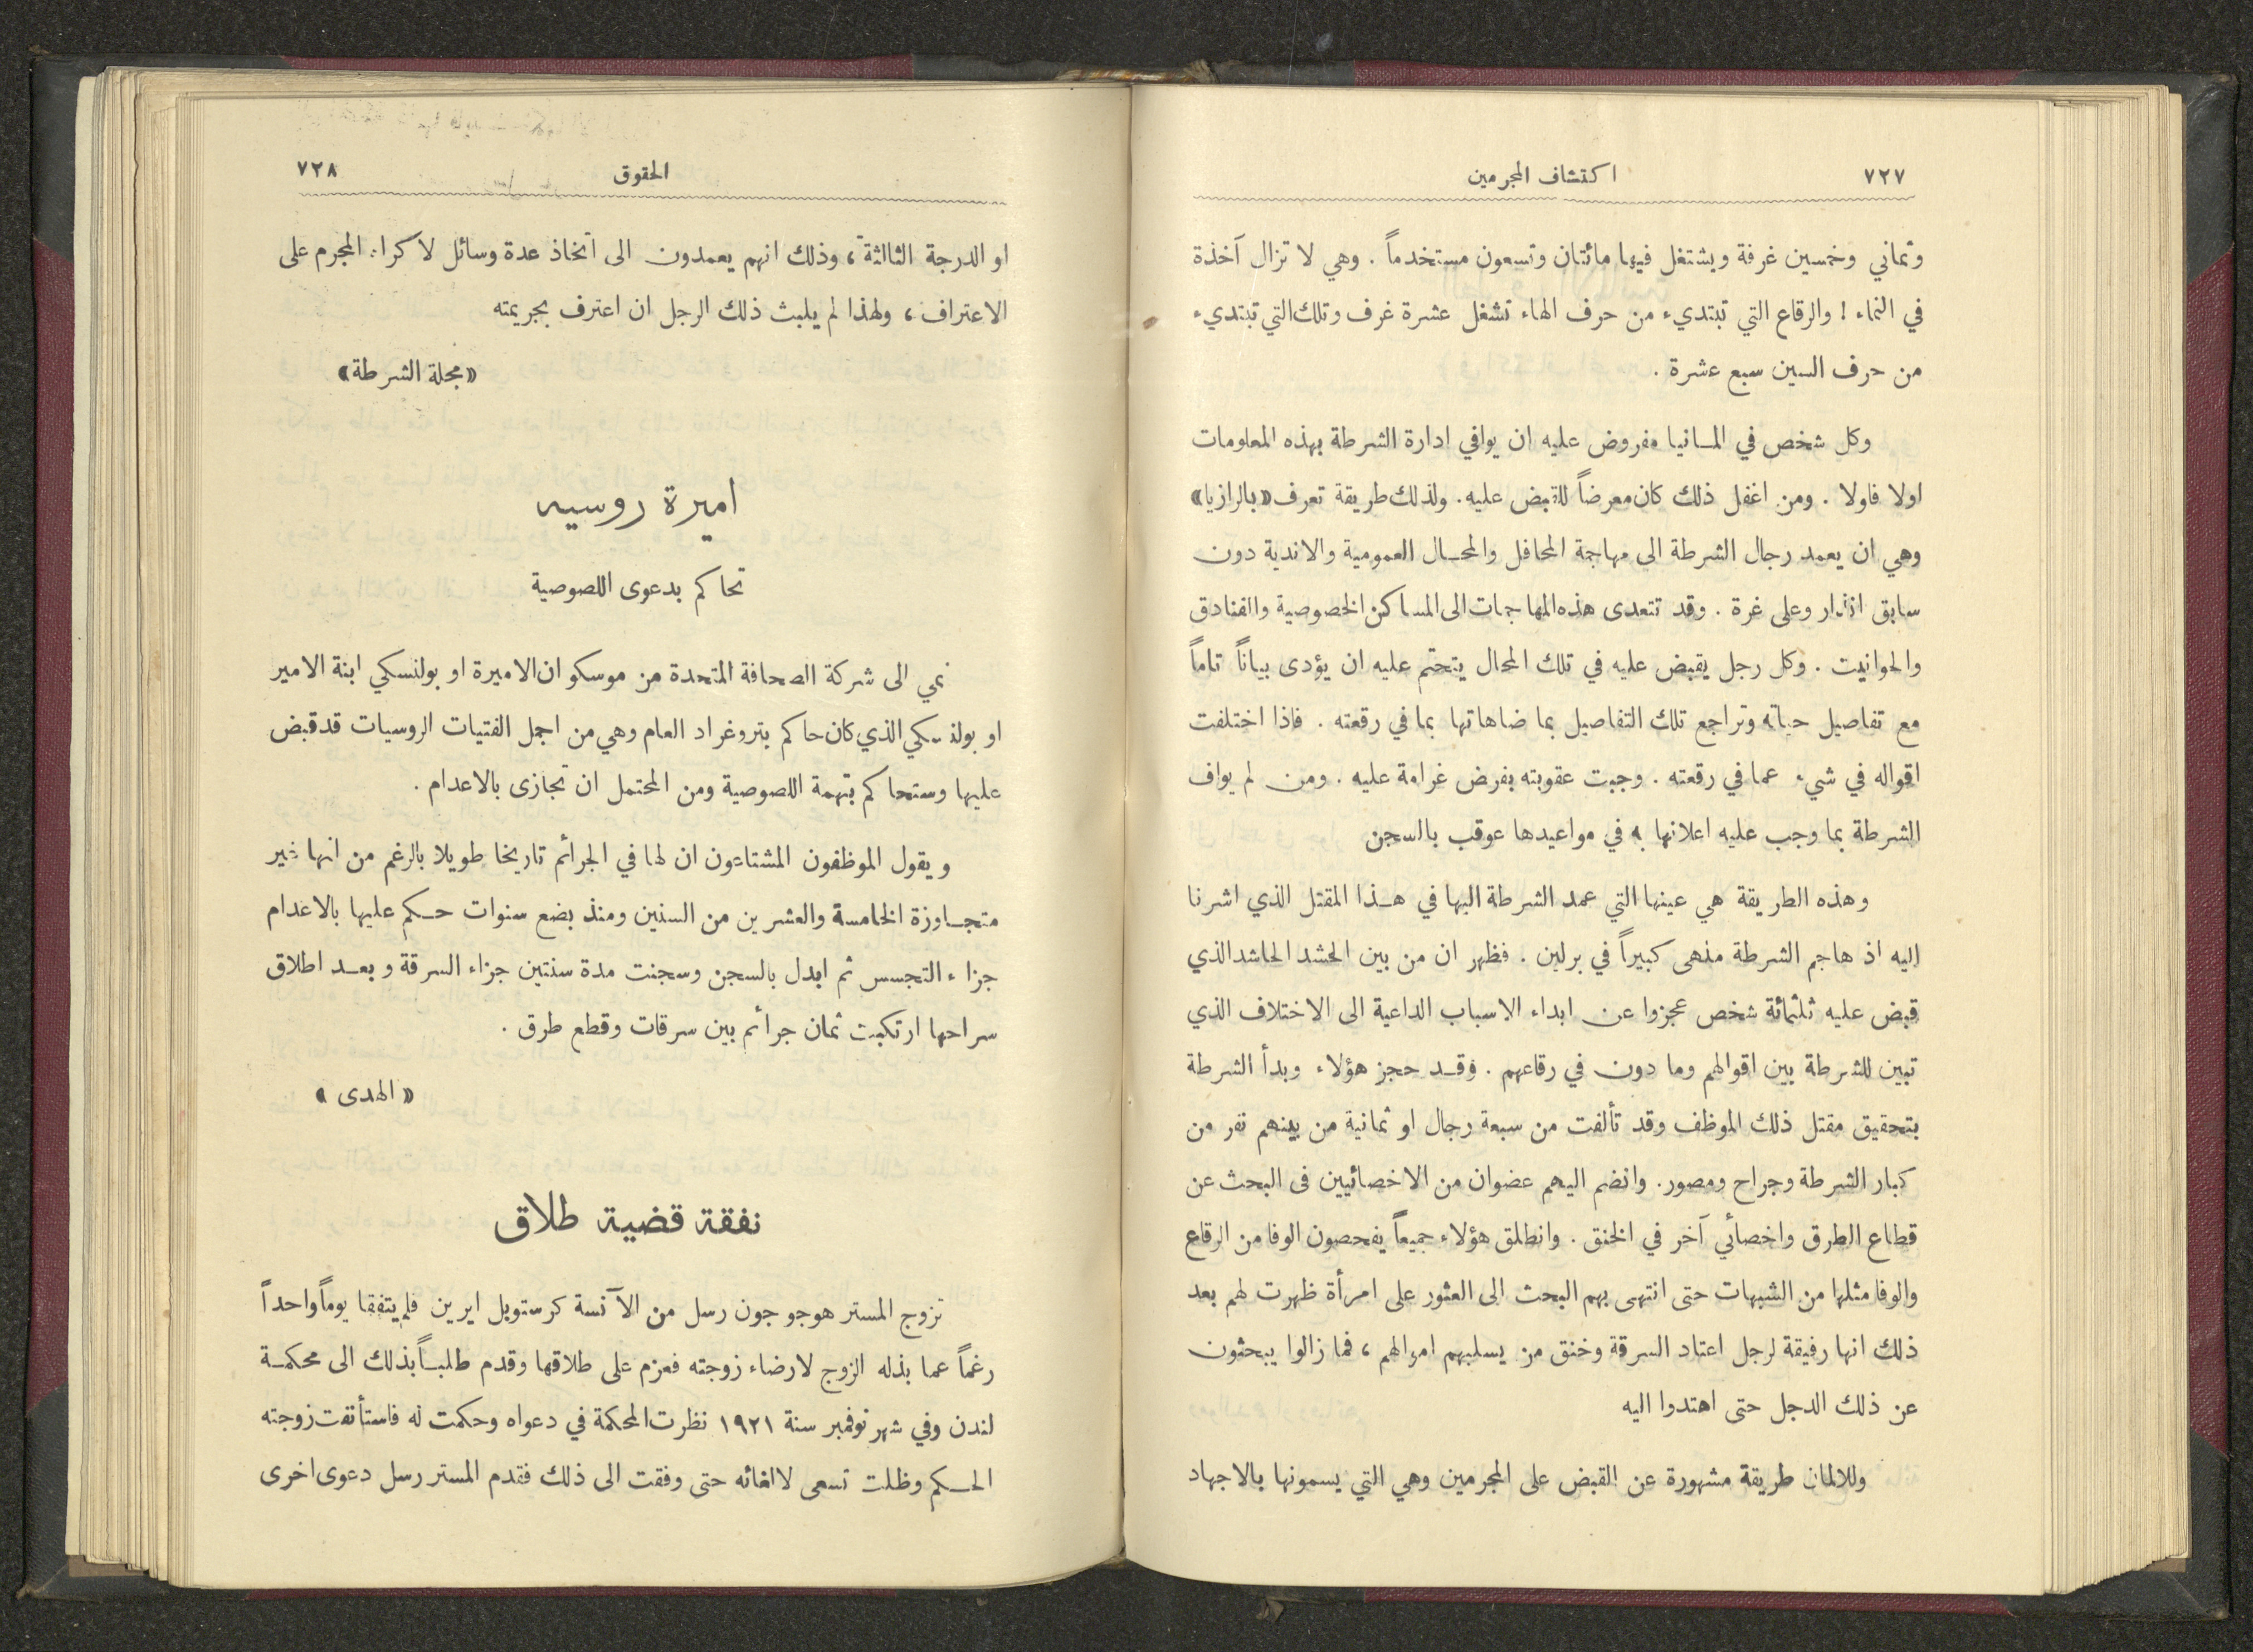 ٧٢٧
اكتشاف المجرمين
وثماني وخمسين غرفة ويشتغل فيها مائتان وتسعون مستخدماً . وهي لا تزال آخذة
في النماء ! والرقاع التي تبتديء من حرف الهاء تشغل عشرة غرف وتلك التي تبتديء
من حرف السين سبع عشرة .
وكل شخص في المانيا مفروض عليه ان يوافي ادارة الشرطة بهذه المعلومات
اولا فاولا . ومن اغفل ذلك كان معرضاً للقبض عليه . ولذلك طريقة تعرف «بالرازيا»
وهي ان يعمد رجال الشرطة الى مهاجمة المحافل والمحال العمومية والاندية دون
سابق انذار وعلى غرة . وقد تتعدى هذه المهاجمات الى المساكن الخصوصية والفنادق
والحوانيت . وكل رجل يقبض عليه في تلك المحال يتحتم عليه ان يؤدى بياناً تاماً
مع تفاصيل حياته وتراجع تلك التفاصيل بما ضاهاتها بما في رقعته . فاذا اختلفت
اقواله في شيء عما في رقعته . وجبت عقوبته بفرض غرامة عليه . ومن لم يواف
الشرطة بما وجب عليه اعلانها به في مواعيدها عوقب بالسجن
وهذه الطريقة هي عينها التي عمد الشرطة اليها في هذا المقتل الذي اشرنا
اليه اذ هاجم الشرطة ملهى كبيراً في برلين . فظهر ان من بين الحشد الحاشد الذي
قبض عليه ثلثمائة شخص عجزوا عن ابداء الاسباب الداعية الى الاختلاف الذي
تبين للشرطة بين اقوالهم وما دون في رقاعهم . وقد حجز هؤلاء وبدأ الشرطة
بتحقيق مقتل ذلك الموظف وقد تألفت من سبعة رجال او ثمانية من بينهم نفر من
كبار الشرطة وجراح ومصور. وانضم اليهم عضوان من الاخصائيين فى البحث عن
قطاع الطرق واخصائي آخر في الخنق . وانطلق هؤلاء جميعاً يفحصون الوفا من الرقاع
والوفا مثلها من الشبهات حتى انتهى بهم البحث الى العثور على امرأة ظهرت لهم بعد
ذلك انها رفيقة لرجل اعتاد السرقة وخنق من يسلبهم اموالهم ، فما زالوا يبحثون
عن ذلك الدجل حتى اهتدوا اليه
وللالمان طريقة مشهورة عن القبض على المجرمين وهي التي يسمونها بالاجهاد
الحقوق
٧٢٨
او الدرجة الثالثة ، وذلك انهم يعمدون الى اتخاذ عدة وسائل لاكراه المجرم على
الاعتراف ، ولهذا لم يلبث ذلك الرجل ان اعترف بجريمته
«مجلة الشرطة»
اميرة روسيه
تحاكم بدعوى اللصوصية
نمي الى شركة الصحافة المتحدة من موسكو ان الاميرة او بولنسكي ابنة الامير
او بولنسكي الذي كان حاكم بتروغراد العام وهي من اجمل الفتيات الروسيات قد قبض
عليها وستحاكم بتهمة اللصوصية ومن المحتمل ان تجازى بالاعدام .
ويقول الموظفون المشتاءون ان لها في الجرائم تاريخا طويلا بالرغم من انها غير
متجاوزة الخامسة والعشرين من السنين ومنذ بضع سنوات حكم عليها بالاعدام
جزاء التجسس ثم ابدل بالسجن وسجنت مدة سنتين جزاء السرقة وبعد اطلاق
سراحها ارتكبت ثمان جرائم بين سرقات وقطع طرق .
« الهدى »
نفقة قضية طلاق
تزوج المستر هوجو جون رسل من الآنسة كرستوبل ايرين فلم يتفقا يوماً واحداً
رغماً عما بذله الزوج لارضاء زوجته فعزم على طلاقها وقدم طلباً بذلك الى محكمة
لندن وفي شهر نوفمبر سنة ١٩٢١ نظرت المحكمة في دعواه وحكمت له فاستأنفت زوجته
الحكم وظلت تسعى لالغائه حتى وفقت الى ذلك فقدم المستر رسل دعوى اخرى